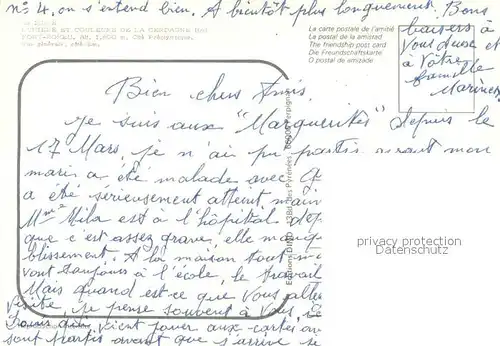 n° 4, on s'entend bien. A bientôt plus longuement. Bons
baisers à
Vous deux et
à Vôtre
famille
LUMIÈRE ET COULEURS DE LA CERDAGNE
FONT-ROMEU, alt. 1.800 m.
Vue générale,
La carte postale de l'amitié
La postal de la amistad
The friendship post card
Die Freundschaftskarte
O postal de amizade
Bien chers Amis
Je suis aux "Marguerites" depuis le
17 Mars, je n'ai pu partir avant mon
mari a été malade avec
a été sérieusement atteint main
Mme Mila est à l'hôpital dep
que c'est assez grave, elle manq
blissement. A la maison tout
vont toujours à l'école, le travail
Mais quand est-ce que Vous alle
visite, je pense souvent à Vous,
vient jouer aux cartes
sont partis avant que s'arrive
Editions des Pyrénées, 66000 Perpign
privacy protection
Datenschutz